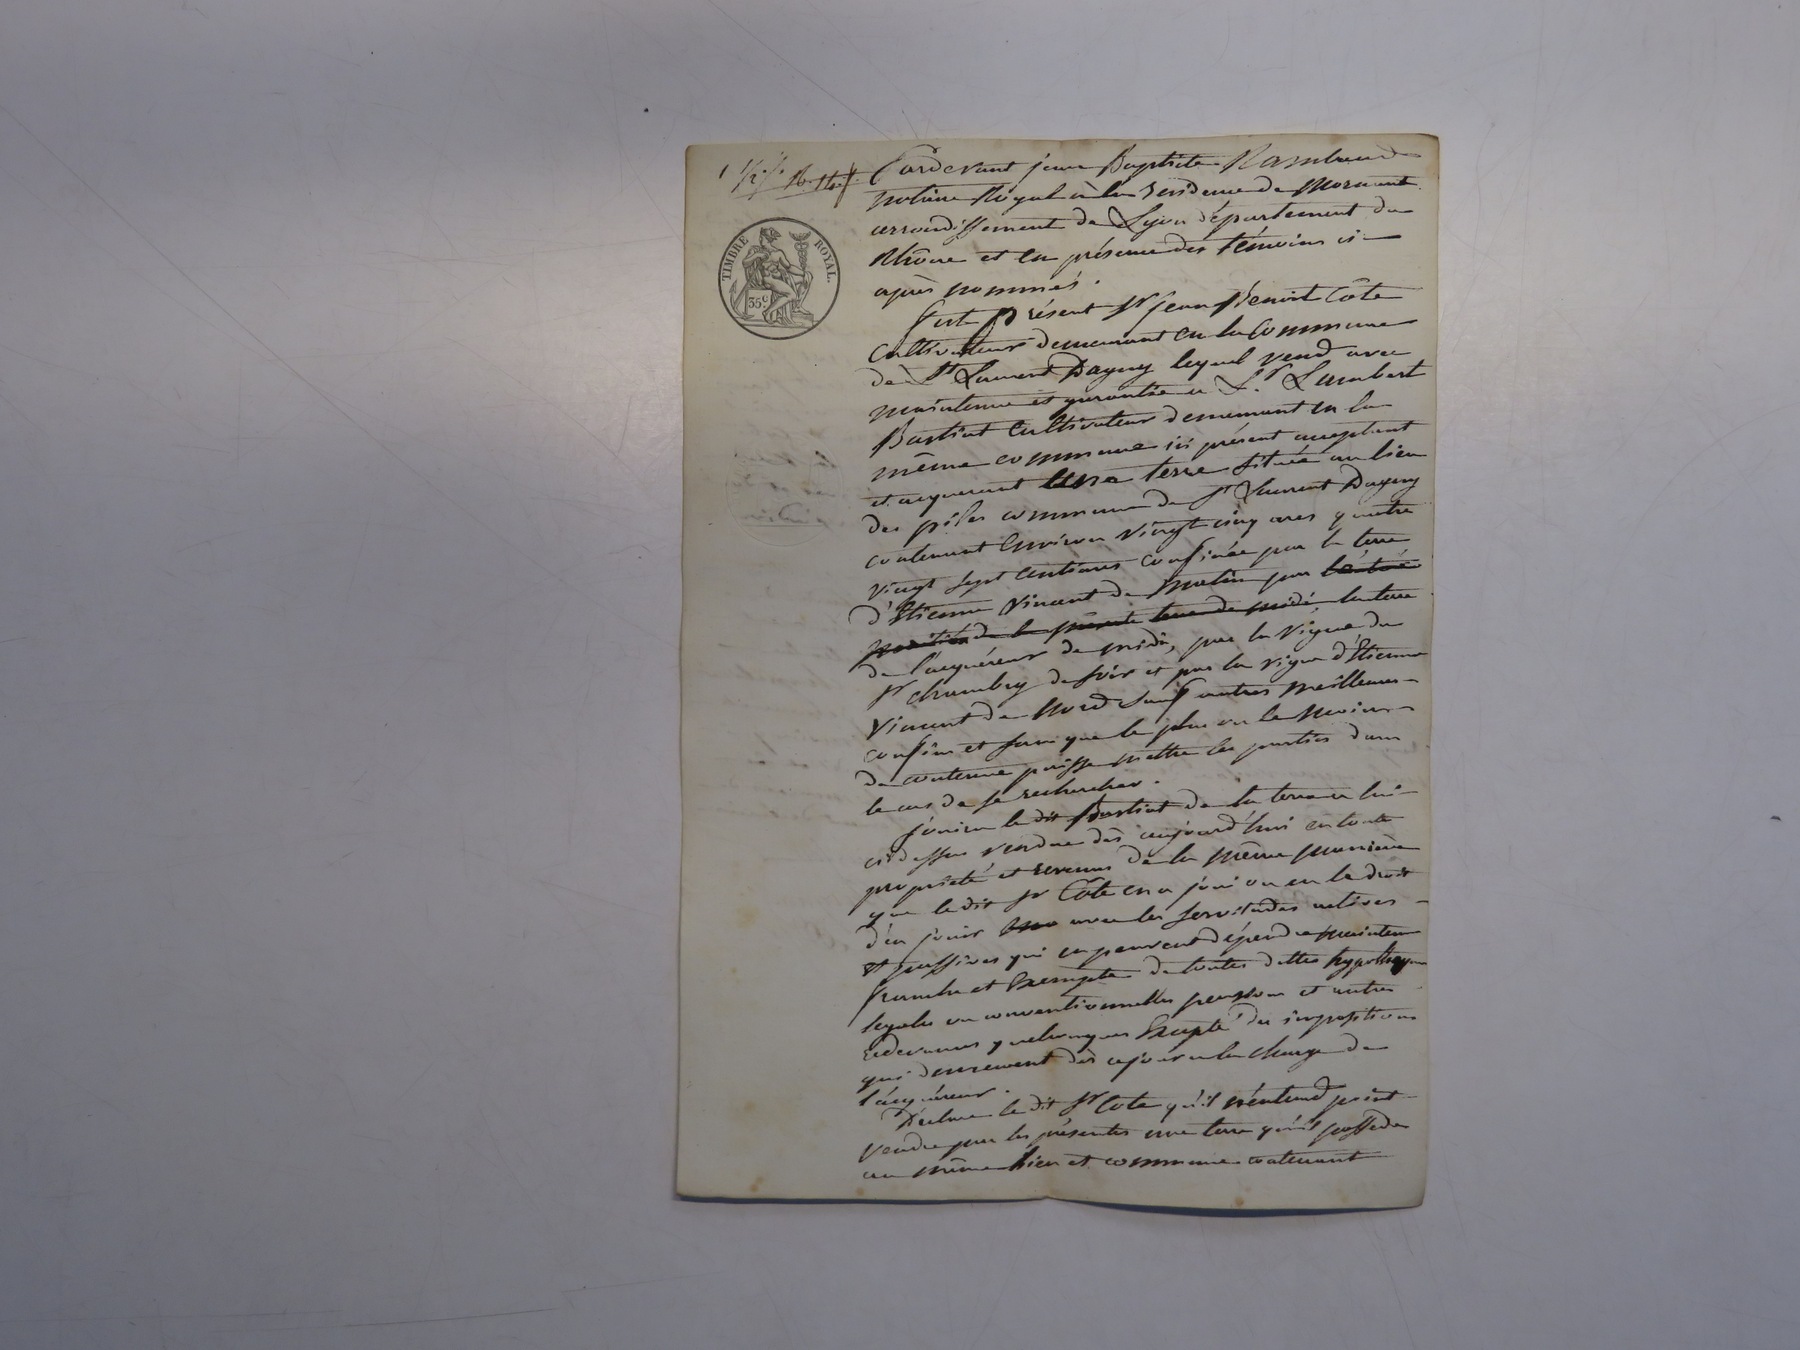 TIMBRE ROYAL.
35c
Pardevant jean Baptiste Rambaud
notaire Royal à la résidence de Mornant
arrondissement de Lyon département du
Rhône et en présence des témoins ci-
après nommés.
fut présent Sr jean Benoit Côte
Cultivateur demeurant en la Commune
de St Laurent Dagny lequel vend avec
maintenue et garantie a Sr Lambert
Bastiat Cultivateur demeurant en la
même commune ici présent acceptant
et acquerant une terre située au lieu
des pilles commune de St Laurent Dagny
contenant Environ vingt cinq ares quatre
vingt sept Centiares confinée par la terre
d'Etienne Vincent de matin par
la terre
de l'acquéreur de midi, par la vigne du
Sr chambry de soir et par la vigne d'Etienne
Vincent de Nord Sauf autres meilleurs
confins et sans que le plus ou le Moins
de contenue puisse mettre les parties dans
le cas de se rechercher.
jouira le dit Bastiat de la terre a lui
ci dessus vendue dès aujourd'hui en toute
propriété et revenus de la même maniere
que le dit Sr Côte en a joui ou eu le droit
d'en jouir avec les servitudes actives
et passives qui en peuvent dépendre maintenu
franche et Exempte de toutes dettes hypotheques
legales ou conventionnelles pensions et autres
redevances quelconques Excepté des impositions
qui demeurent dès ce jour a la charge de
l'acquéreur.
Déclare le dit Sr Cote qu'il n'entend point
vendre par les présentes une terre qu'il possede
au même lieu et commune contenant